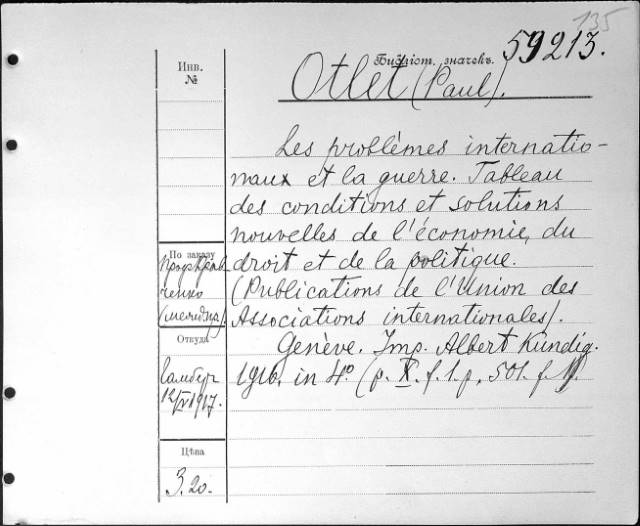 135
59213.
Инв.
№
Библіот. значекъ.
Otlet (Paul).
Les problèmes internatio-
naux et la guerre. Tableau
des conditions et solutions
nouvelles de l'économie, du
droit et de la politique.
(Publications de l'Union des
Associations internationales).
Genève. Imp. Albert Kündig.
1916. in 4º (p. X. f. 1. p. 501. f. 1)
По заказу
Проф. Крав
ченко
Откуда
Самберг
12/VI 1917.
Цѣна
3.20.